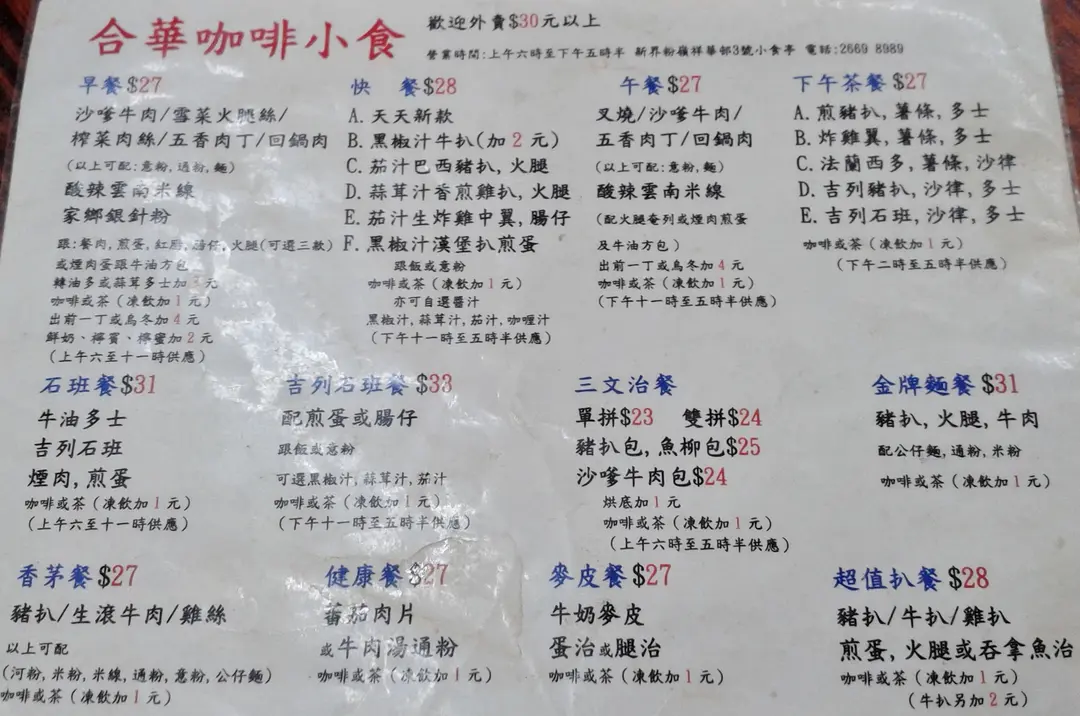 合華咖啡小食
歡迎外賣$30元以上
營業時間:上午六時至下午五時半 新界粉嶺祥華邨3號小食亭 電話:2669 8989
早餐$27
沙嗲牛肉/雪菜火腿絲/
榨菜肉絲/五香肉丁/回鍋肉
(以上可配:意粉,通粉,麵)
酸辣雲南米線
家鄉銀針粉
跟:餐肉,煎蛋,紅腸,腸仔,火腿(可選三款)
或煙肉蛋跟牛油方包
轉油多或蒜茸多士加 元
咖啡或茶(凍飲加1元)
出前一丁或烏冬加4元
鮮奶、檸賓、檸蜜加2元
(上午六至十一時供應)
快 餐$28
A. 天天新款
B. 黑椒汁牛扒(加2元)
C. 茄汁巴西豬扒,火腿
D. 蒜茸汁香煎雞扒,火腿
E. 茄汁生炸雞中翼,腸仔
F. 黑椒汁漢堡扒煎蛋
跟飯或意粉
咖啡或茶(凍飲加1元)
亦可自選醬汁
黑椒汁,蒜茸汁,茄汁,咖喱汁
(下午十一時至五時半供應)
午餐$27
叉燒/沙嗲牛肉/
五香肉丁/回鍋肉
(以上可配:意粉,麵)
酸辣雲南米線
(配火腿奄列或煙肉煎蛋
及牛油方包)
出前一丁或烏冬加4元
咖啡或茶(凍飲加1元)
(下午十一時至五時半供應)
下午茶餐$27
A. 煎豬扒,薯條,多士
B. 炸雞翼,薯條,多士
C. 法蘭西多,薯條,沙律
D. 吉列豬扒,沙律,多士
E. 吉列石班,沙律,多士
咖啡或茶(凍飲加1元)
(下午二時至五時半供應)
石班餐$31
牛油多士
吉列石班
煙肉,煎蛋
咖啡或茶(凍飲加1元)
(上午六至十一時供應)
吉列石班餐$33
配煎蛋或腸仔
跟飯或意粉
可選黑椒汁,蒜茸汁,茄汁
咖啡或茶(凍飲加1元)
(下午十一時至五時半供應)
三文治餐
單拼$23 雙拼$24
豬扒包,魚柳包$25
沙嗲牛肉包$24
烘底加1元
咖啡或茶(凍飲加1元)
(上午六時至五時半供應)
金牌麵餐$31
豬扒,火腿,牛肉
配公仔麵,通粉,米粉
咖啡或茶(凍飲加1元)
香茅餐$27
豬扒/生滾牛肉/雞絲
以上可配
(河粉,米粉,米線,通粉,意粉,公仔麵)
咖啡或茶(凍飲加1元)
健康餐$27
蕃茄肉片
或牛肉湯通粉
咖啡或茶(凍飲加1元)
麥皮餐$27
牛奶麥皮
蛋治或腿治
咖啡或茶(凍飲加1元)
超值扒餐$28
豬扒/牛扒/雞扒
煎蛋,火腿或吞拿魚治
咖啡或茶(凍飲加1元)
(牛扒另加2元)